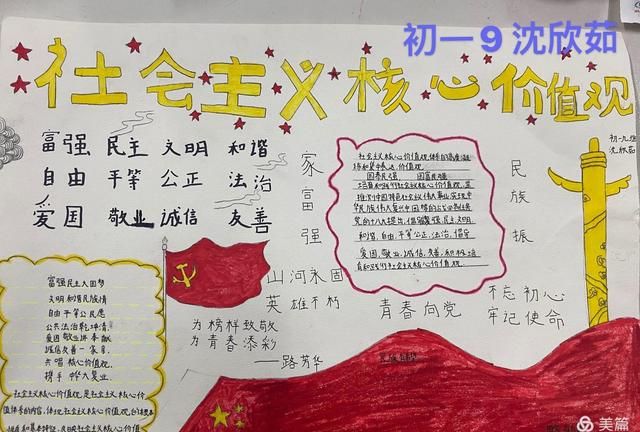 初一9 沈欣茹
社会主义核心价值观
初一九班
沈欣茹
富强 民主 文明 和谐
自由 平等 公正 法治
爱国 敬业 诚信 友善
家富强
民族振
社会主义核心价值观
培育和践行社会主义核心价值观,是
推进中国特色社会主义伟大事业,实现中
华民族伟大复兴中国梦的
党的十八大提出,倡导富强、民主、文明、
和谐,自由、平等、公正、法治,倡导
爱国、敬业、诚信、友善,积极培
山河永固
英雄不朽
青春向党
不忘初心
牢记使命
为榜样致敬
为青春添彩
——路芳华
富强民主入国梦
文明和谐民族情
自由平等公民愿
公共法治乾坤清
爱国敬业
诚信友善一家亲
共唱核心价值观
携手中华大复兴
社会主义核心价值观,是社会主义核心价
值体系的内容,体现社会主义核心价值观
美篇